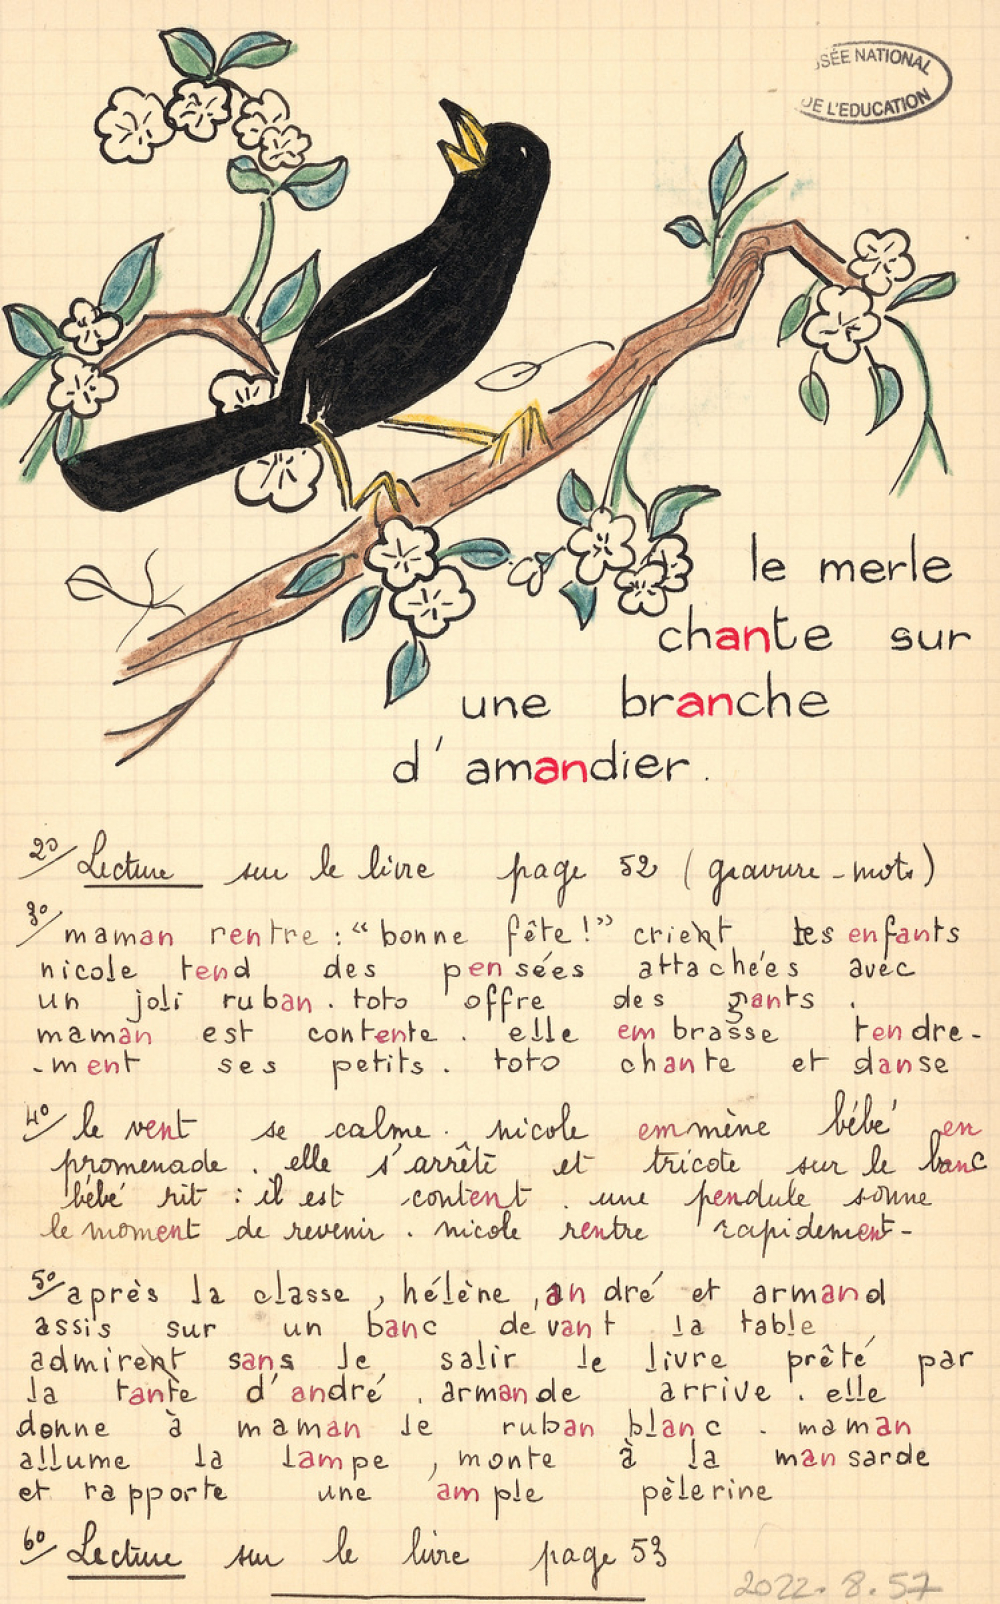 SÉE NATIONAL
DE L'EDUCATION
le merle
chante sur
une branche
d'amandier.
2°/ Lecture sur le livre page 52 (gravure - mots)
3°/ maman rentre : "bonne fête !" crient les enfants
nicole tend des pensées attachées avec
un joli ruban. toto offre des gants.
maman est contente. elle embrasse tendre-
-ment ses petits. toto chante et danse
4°/ le vent se calme. nicole emmène bébé en
promenade. elle s'arrête et tricote sur le banc
bébé rit : il est content. une pendule sonne
le moment de revenir. nicole rentre rapidement-
5°/ après la classe, hélène, andré et armand
assis sur un banc devant la table
admirent sans le salir le livre prêté par
la tante d'andré. armande arrive. elle
donne à maman le ruban blanc. maman
allume la lampe, monte à la mansarde
et rapporte une ample pèlerine
6°/ Lecture sur le livre page 53
2022.8.57